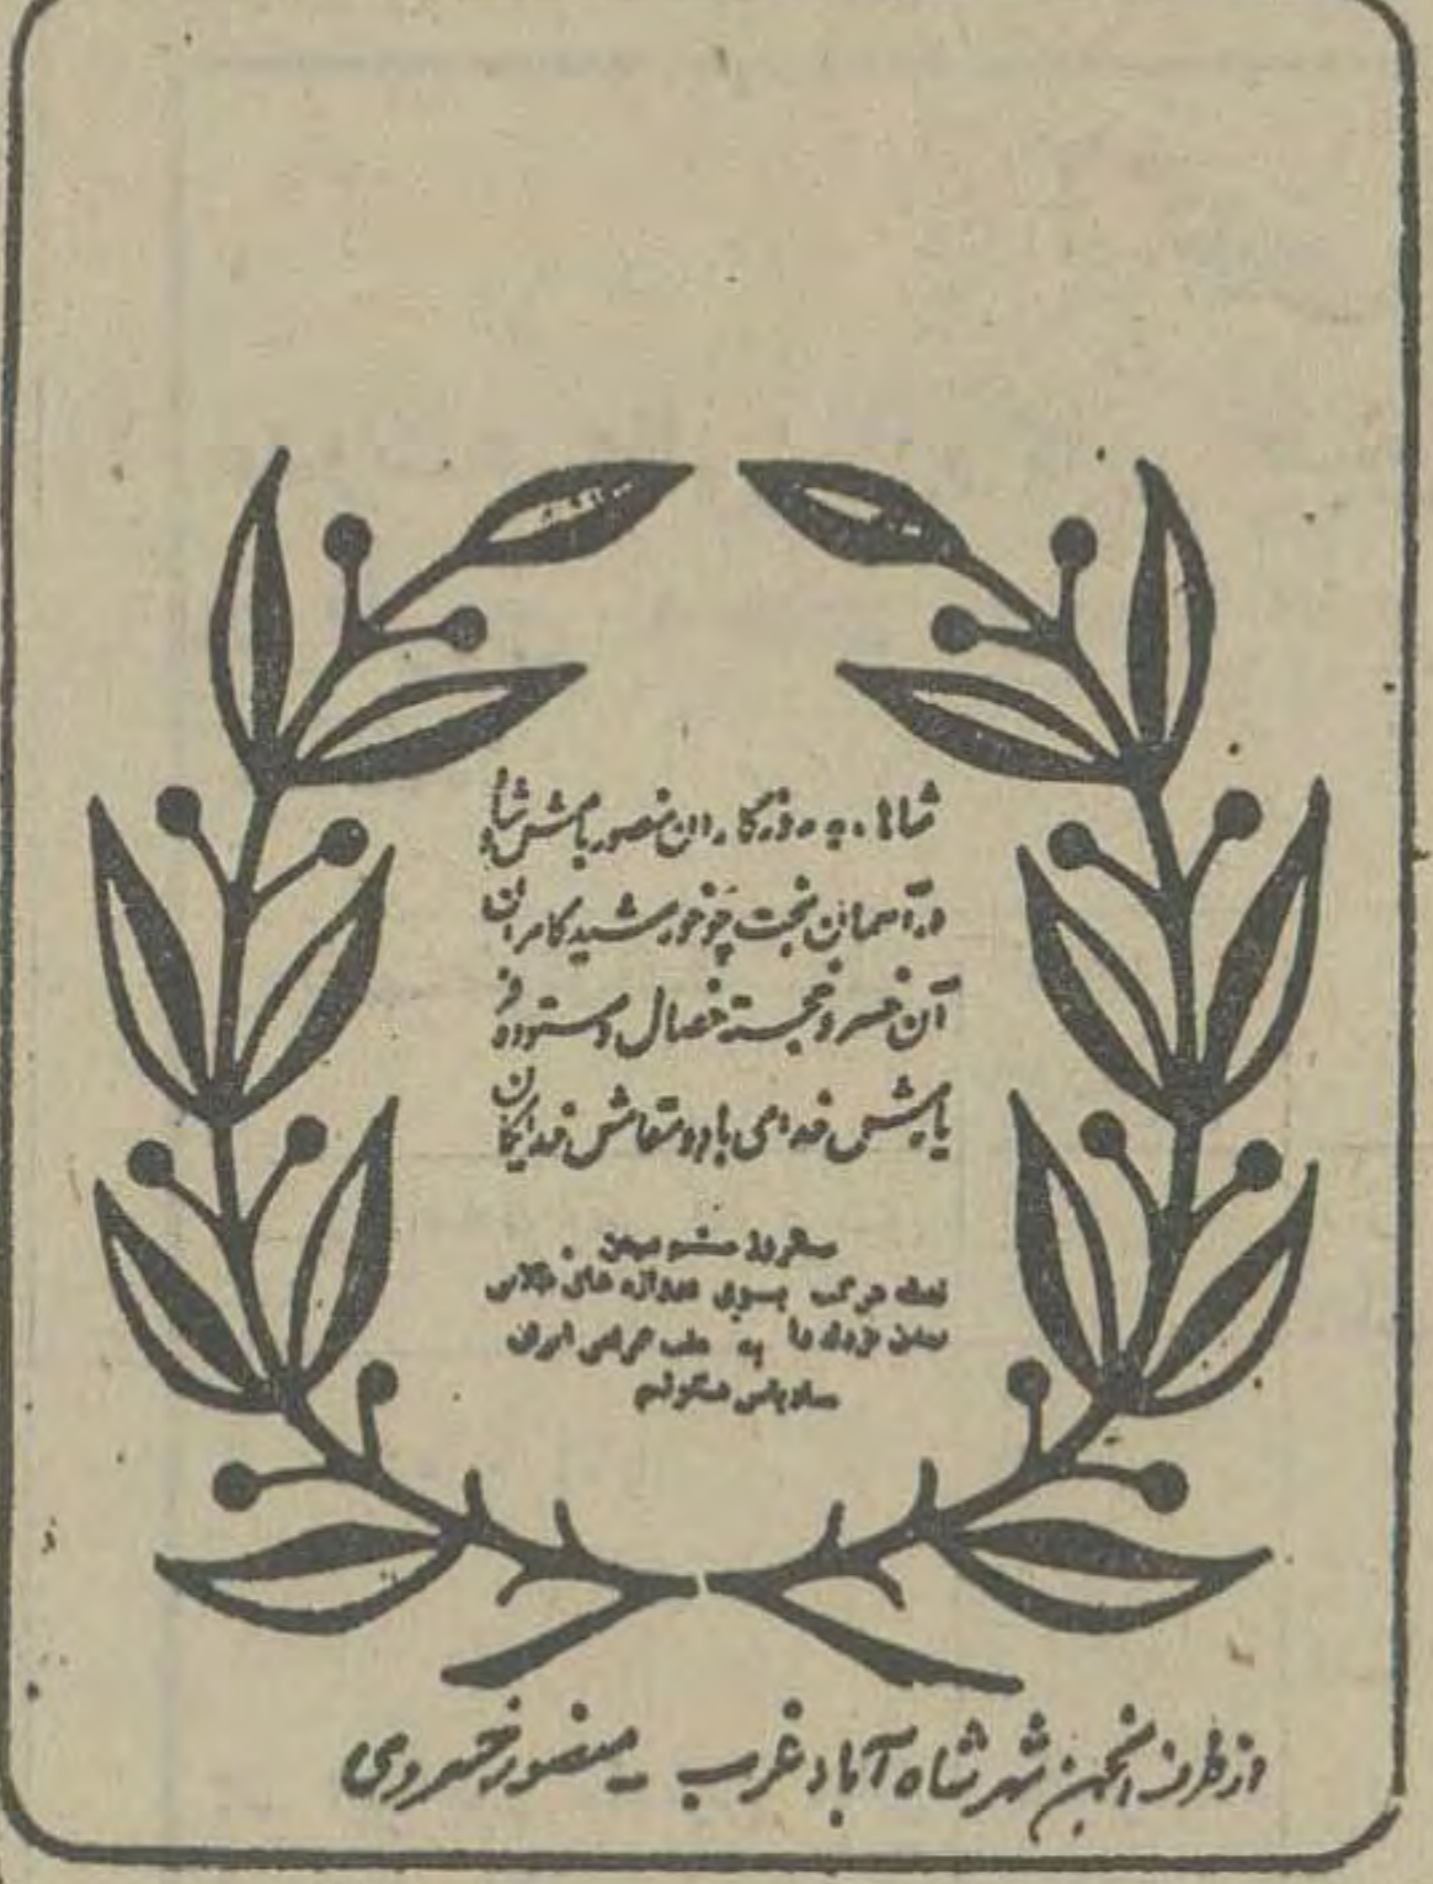 شاها، به روزگاران منصور باش و شاد
در آسمان بخت چو خورشید کامران
آن خسرو خجسته خصال و ستوده فر
یارش خدای باد و بقایش خدایگان
سالروز ششم بهمن
نقطه حرکت بسوی دروازه های طلائی
تمدن بزرگ را به ملت گرامی ایران
شادباش میگوئیم
از طرف انجمن شهر شاه آباد غرب - منصور خسروی